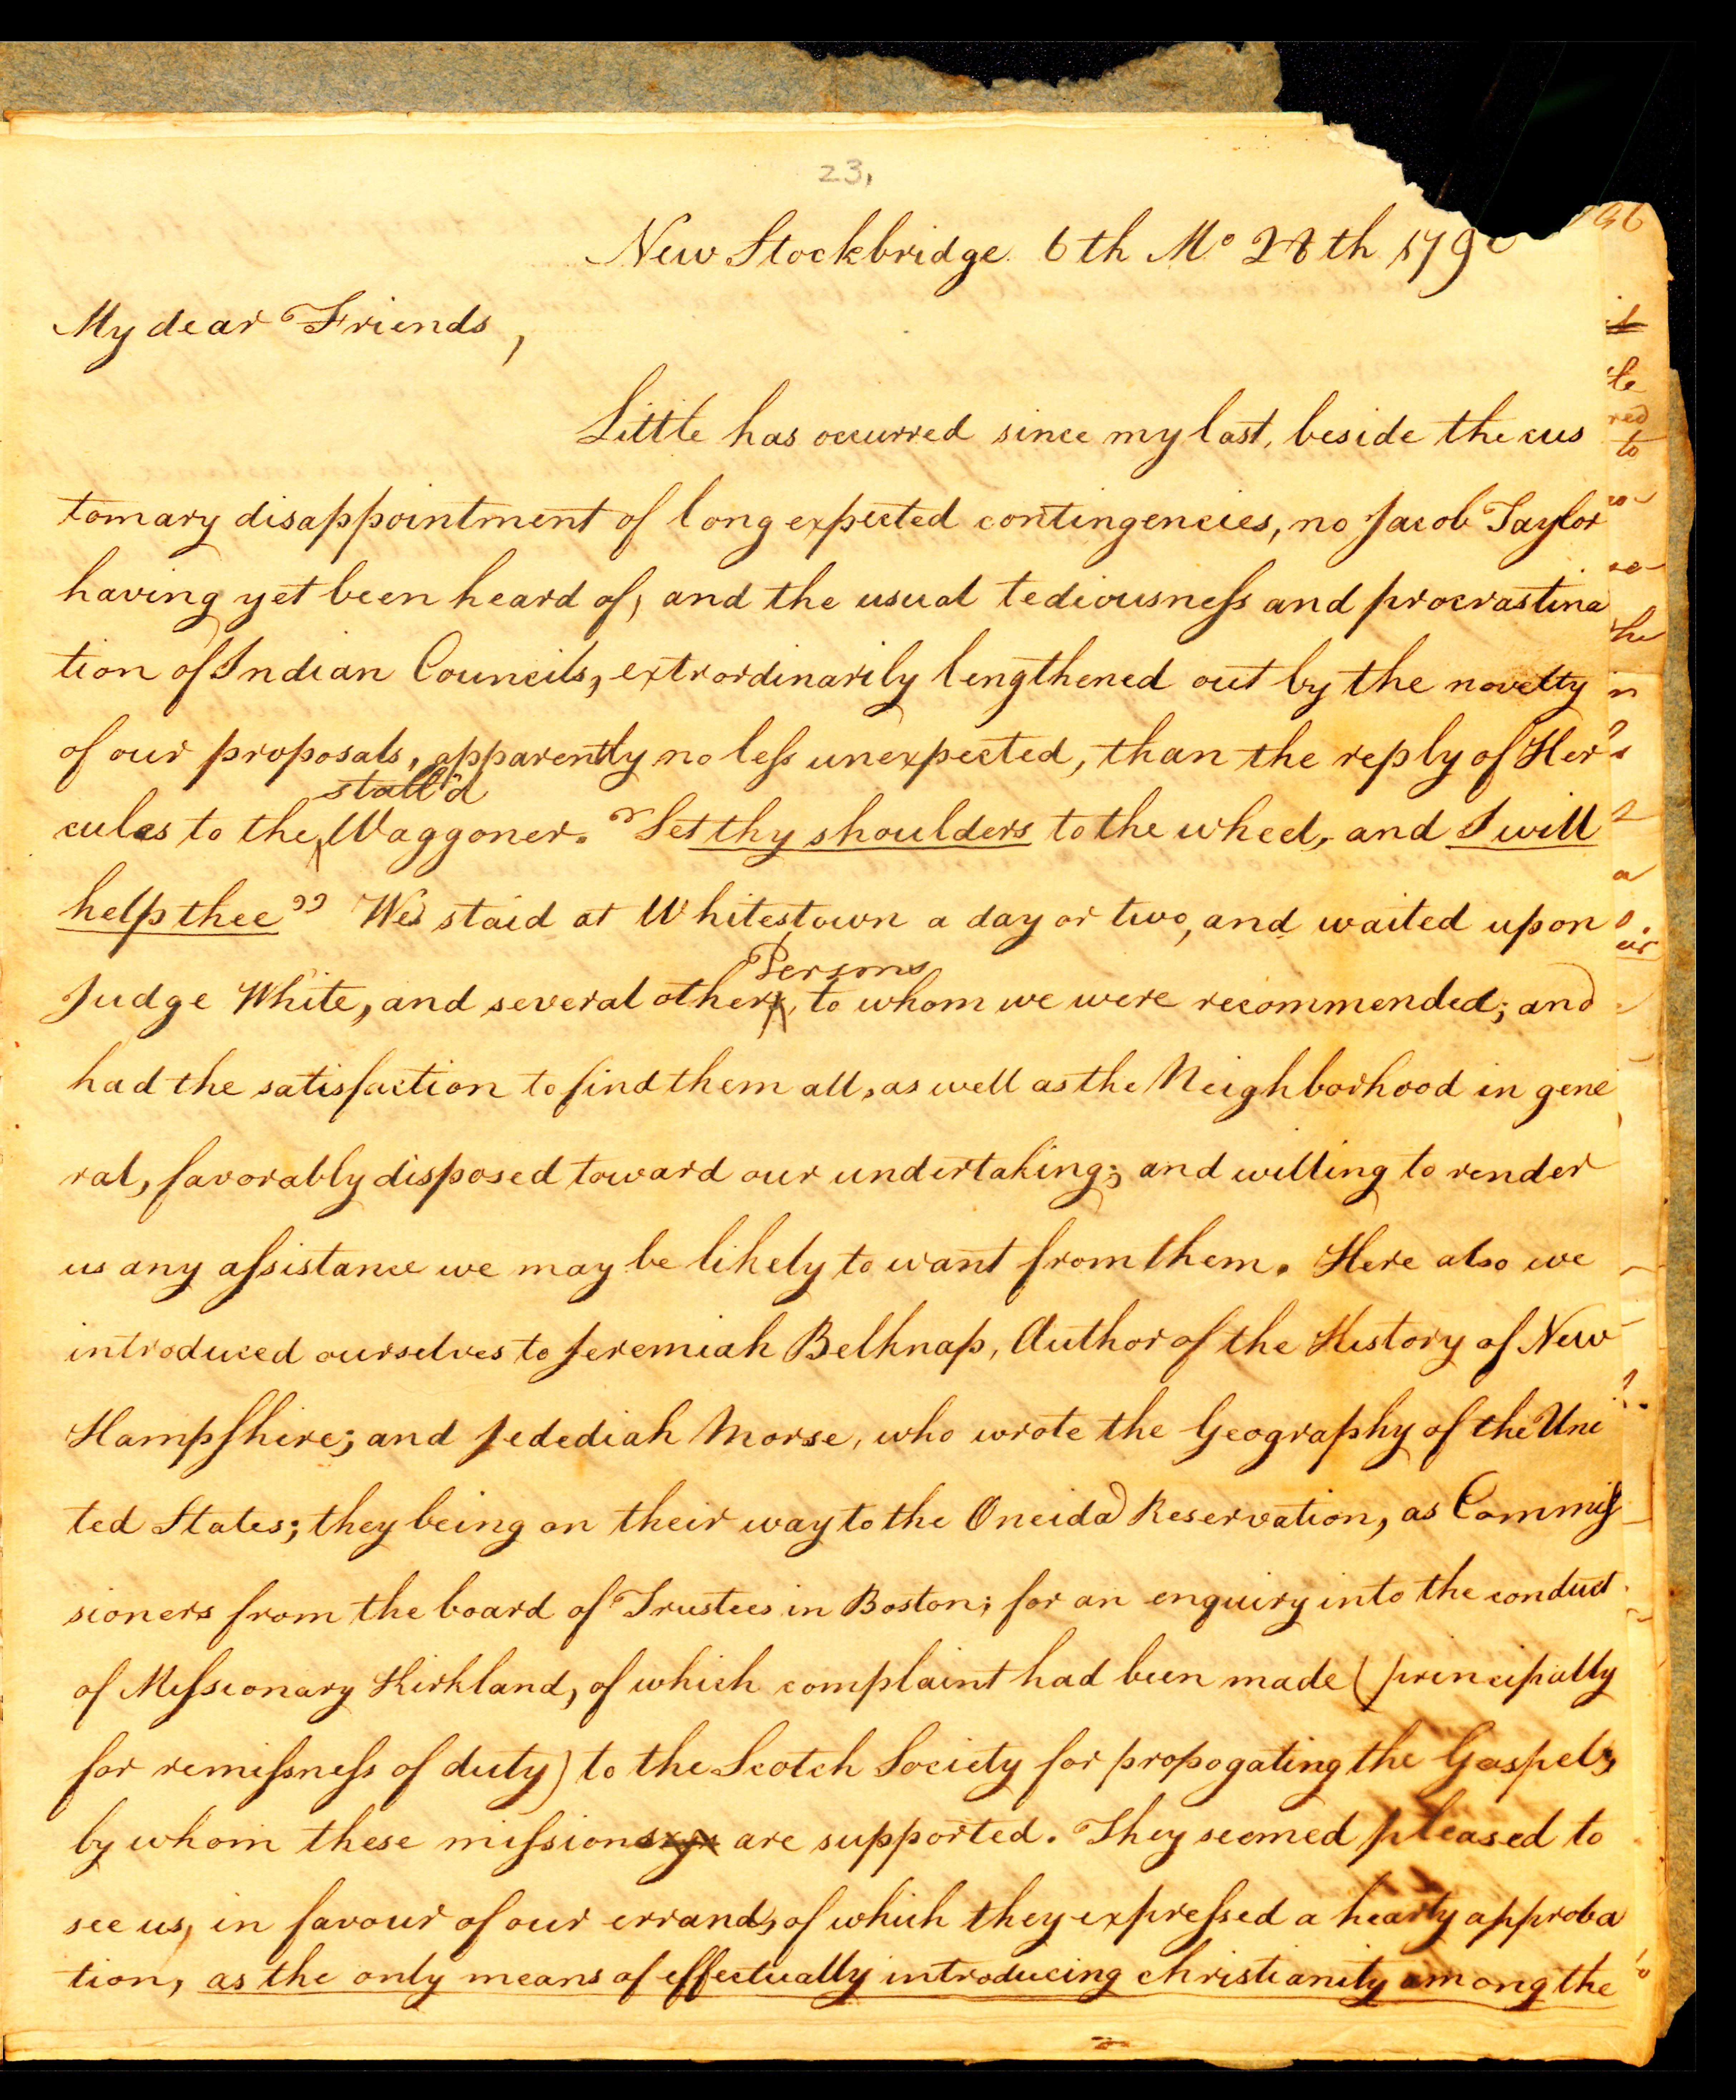 23,
New Stockbridge 6th Mo 28th 179
My dear Friends,
Little has occurred since my last, beside the cus
tomary disappointment of long expected contingencies, no Jacob Taylor
having yet been heard of, and the usual tediousness and procrastina
tion of Indian Councils, extrordinarily lengthened out by the novelty
of our proposals, apparently no less unexpected, than the reply of Her
stall'd
cules to the Waggoner. "Set thy shoulders to the wheel, and I will
help thee" We staid at Whitestown a day or two, and waited upon
Persons
Judge White, and several other, to whom we were recommended; and
had the satisfaction to find them all, as well as the Neighborhood in gene
ral, favorably disposed toward our undertaking; and willing to render
us any assistance we may be likely to want from them. Here also we
introduced ourselves to Jeremiah Belknap, Author of the History of New
Hampshire; and Jedediah Morse, who wrote the Geography of the Uni
ted States; they being on their way to the Oneida Reservation, as Commis
sioners from the board of Trustees in Boston; for an enquiry into the conduct
of Missionary Kirkland, of which complaint had been made (principally
for remissness of duty) to the Scotch Society for propogating the Gospel,
by whom these missions are supported. They seemed pleased to
see us, in favour of our errand, of which they expressed a hearty approba
tion, as the only means of effectually introducing christianity among the